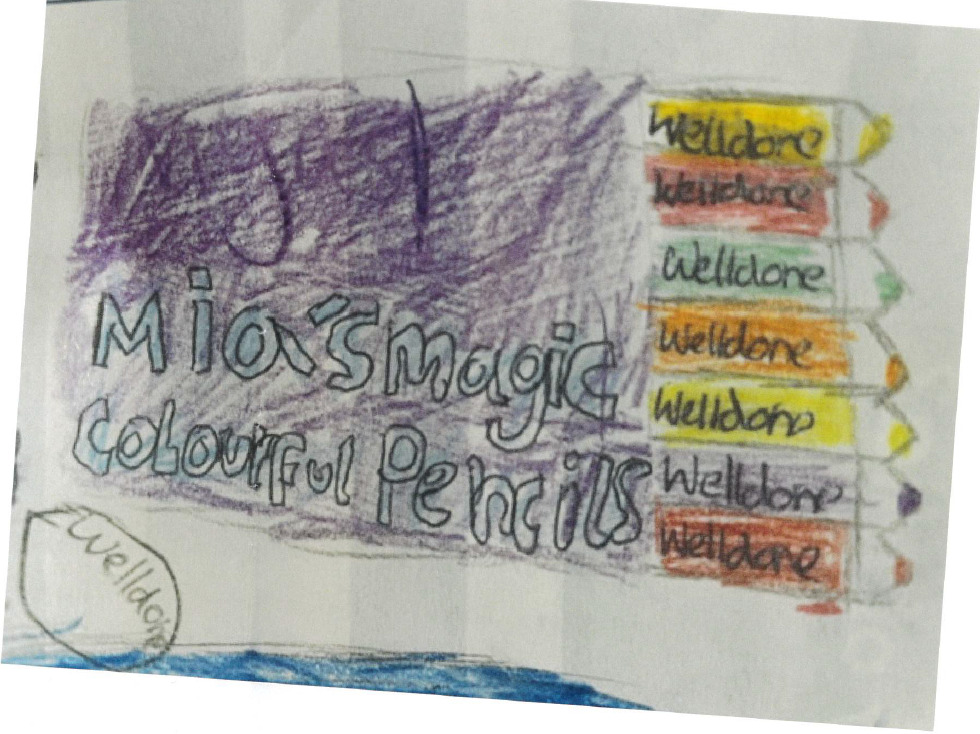 Mia's magic
Colourful Pencils
Welldone
Welldone
Welldone
Welldone
Welldone
Welldone
Welldone
Welldone